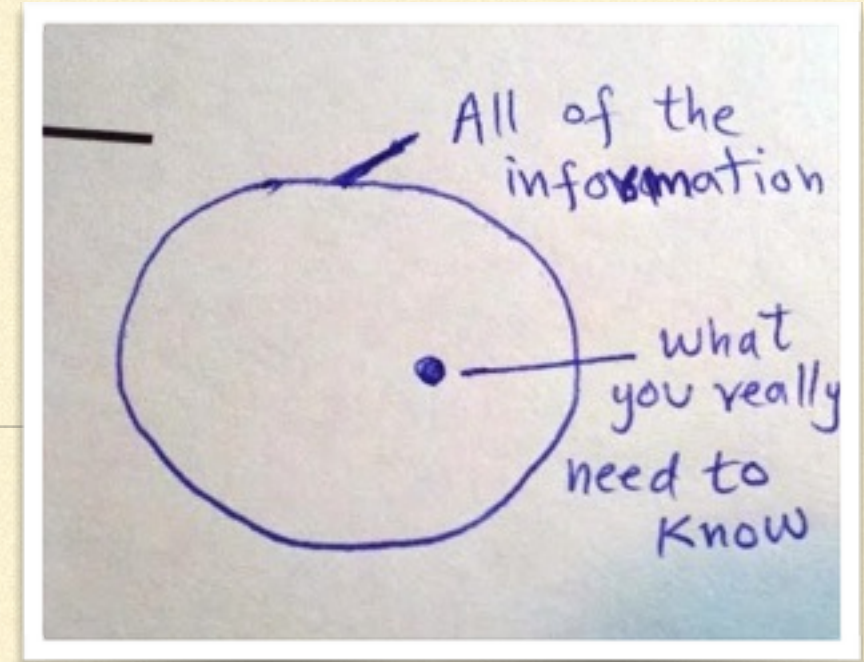 All of the
information
what
you really
need to
Know